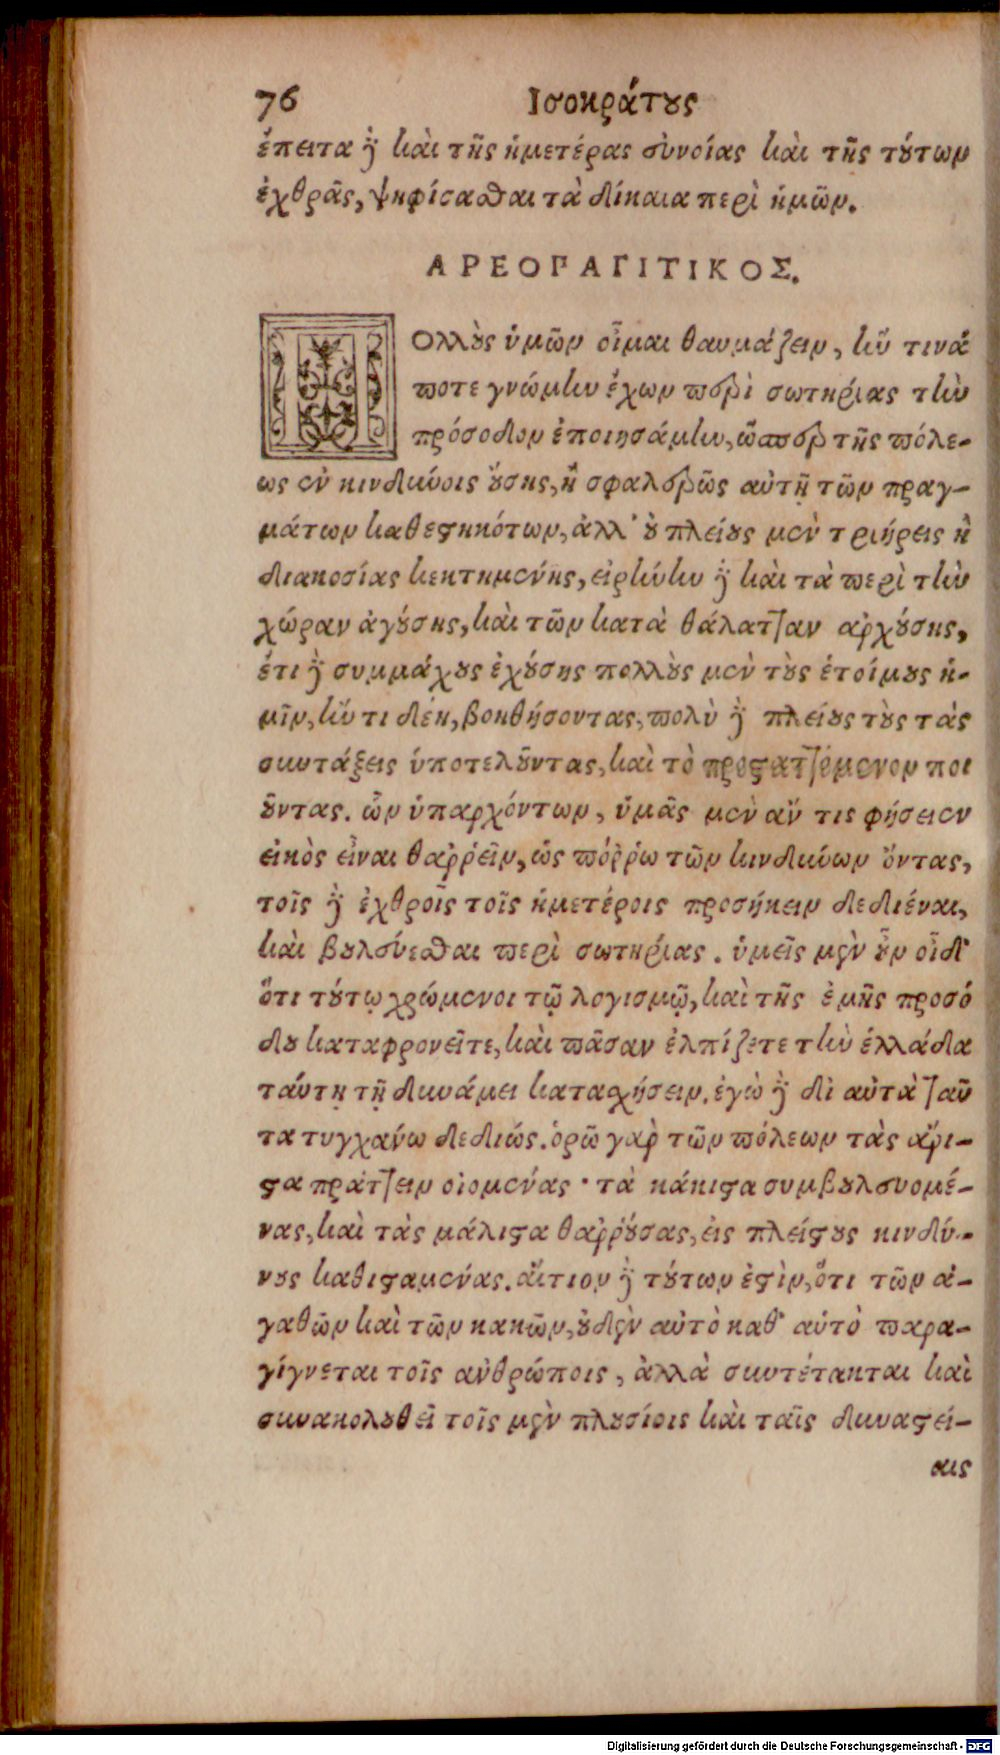 76 Ισοκράτους
ἔπειτα δὲ καὶ τῆς ἡμετέρας συνοίας καὶ τῆς τούτων
ἐχθρᾶς, ψηφίσασθαι τὰ δίκαια περὶ ἡμῶν.
ΑΡΕΟΠΑΓΙΤΙΚΟΣ.
Πολλοὺς ὑμῶν οἶμαι θαυμάζειν, ἥν τινά
ποτε γνώμην ἔχων περὶ σωτηρίας τὴν
πρόσοδον ἐποιησάμην, ὥσπερ τῆς πόλε-
ως ἐν κινδύνοις οὔσης, ἢ σφαλερῶς αὐτῇ τῶν πραγ-
μάτων καθεστηκότων, ἀλλ' οὐ πλείους μὲν τριήρεις ἢ
διακοσίας κεκτημένης, εἰρήνην δὲ καὶ τὰ περὶ τὴν
χώραν ἀγούσης, καὶ τῶν κατὰ θάλατταν ἀρχούσης,
ἔτι δὲ συμμάχους ἐχούσης πολλοὺς μὲν τοὺς ἑτοίμους ἡ-
μῖν, ἤν τι δέῃ, βοηθήσοντας, πολὺ δὲ πλείους τοὺς τὰς
συντάξεις ὑποτελοῦντας, καὶ τὸ προσταττόμενον ποι
οῦντας. ὧν ὑπαρχόντων, ὑμᾶς μὲν ἄν τις φήσειεν
εἰκὸς εἶναι θαῤῥεῖν, ὡς πόῤῥω τῶν κινδύνων ὄντας,
τοῖς δὲ ἐχθροῖς τοῖς ἡμετέροις προσήκειν δεδιέναι,
καὶ βουλεύεσθαι περὶ σωτηρίας. ὑμεῖς μὲν οὖν οἶδ'
ὅτι τούτῳ χρώμενοι τῷ λογισμῷ, καὶ τῆς ἐμῆς προσό
δου καταφρονεῖτε, καὶ πᾶσαν ἐλπίζετε τὴν ἑλλάδα
ταύτῃ τῇ δυνάμει κατασχήσειν. ἐγὼ δὲ δι αὐτὰ ταῦ
τα τυγχάνω δεδιώς. ὁρῶ γὰρ τῶν πόλεων τὰς ἄρι-
στα πράττειν οἰομένας · τὰ κάκιστα συμβουλευομέ-
νας, καὶ τὰς μάλιστα θαῤῥούσας, εἰς πλείστους κινδύ-
νους καθισταμένας. αἴτιον δὲ τούτων ἐστὶν, ὅτι τῶν ἀ-
γαθῶν καὶ τῶν κακῶν, οὐδὲν αὐτὸ καθ' αὑτὸ παρα-
γίγνεται τοῖς ἀνθρώποις, ἀλλὰ συντέτακται καὶ
συνακολουθεῖ τοῖς μὲν πλουσίοις καὶ ταῖς δυναστεί-
αις
Digitalisierung gefördert durch die Deutsche Forschungsgemeinschaft - DFG